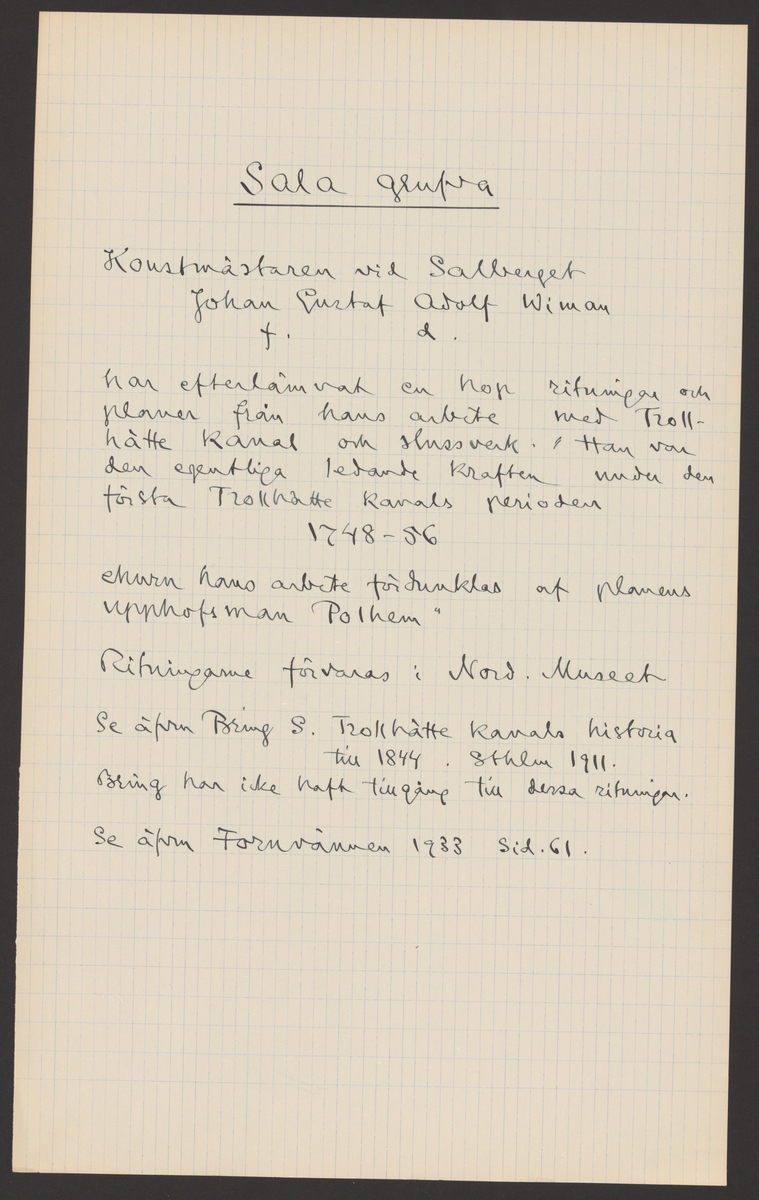 Sala grufva
Konstmästaren vid Salberget
Johan Gustaf Adolf Wiman
f. d.
har efterlämnat en hop ritningar och
planer från hans arbete med Troll-
hätte Kanal och slussverk. "Han var
den egentliga ledande kraften under den
första Trollhätte kanals perioden
1748-56
ehuru hans arbete fördunklas af planens
upphofsman Polhem"
Ritningarne förvaras i Nord. Museet
Se äfvn Bring S. Trollhätte kanals historia
till 1844. Sthlm 1911.
Bring har icke haft tillgång till dessa ritningar.
Se äfvn Fornvännen 1933 Sid. 61.